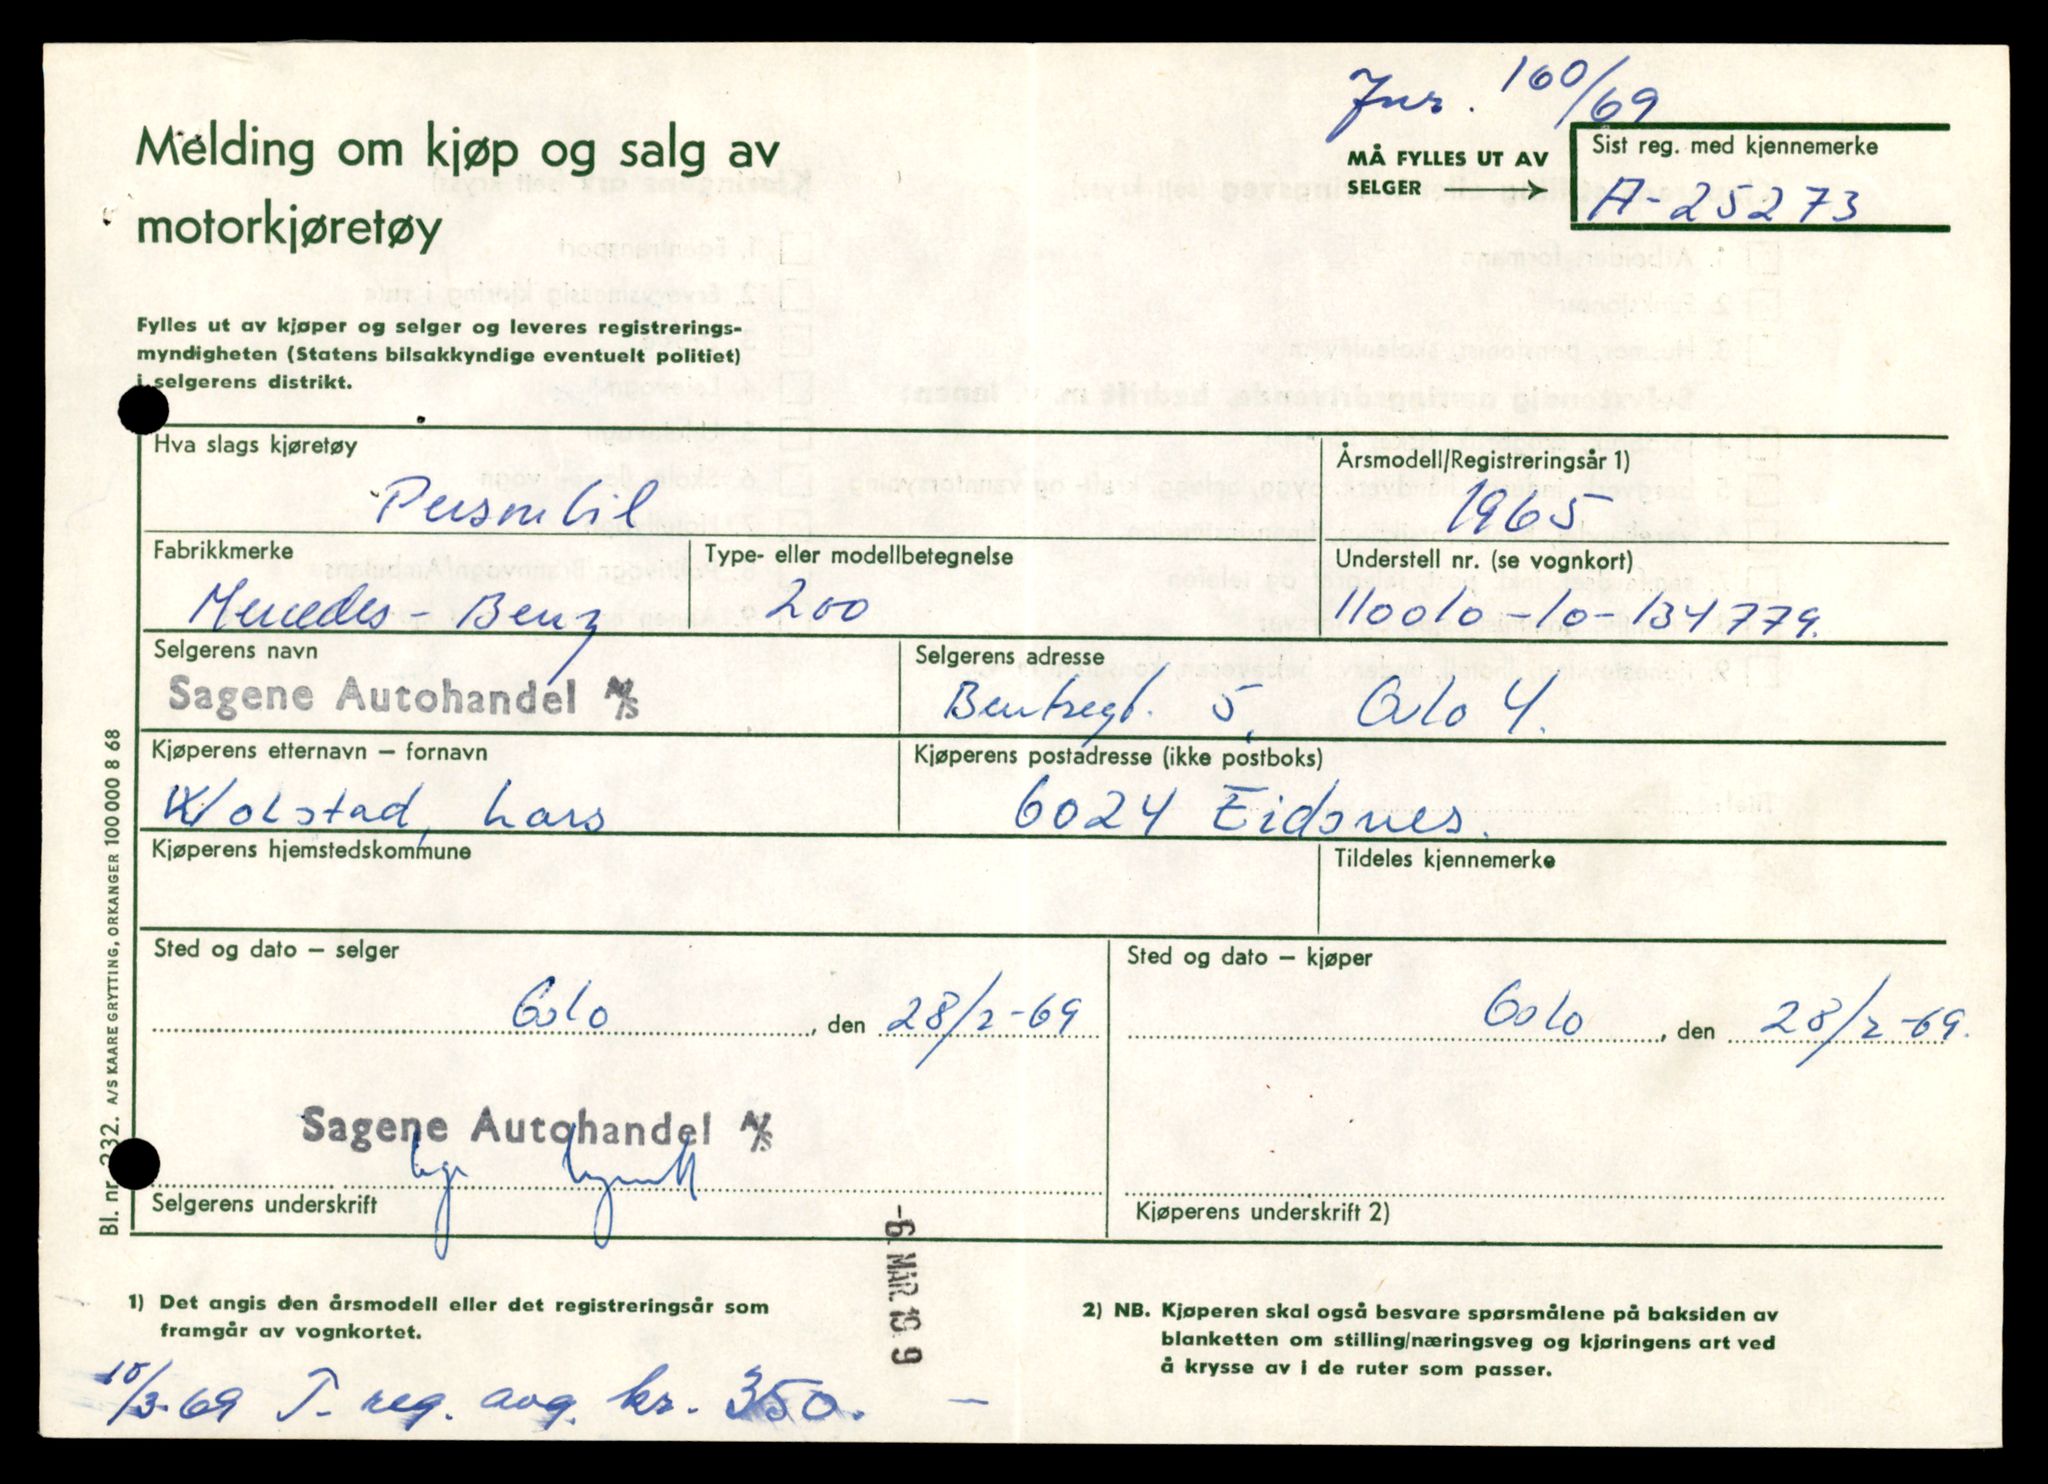 Jnr. 160/69
Melding om kjøp og salg av
motorkjøretøy
MÅ FYLLES UT AV
SELGER
Sist reg. med kjennemerke
A-25273
Fylles ut av kjøper og selger og leveres registrerings-
myndigheten (Statens bilsakkyndige eventuelt politiet)
i selgerens distrikt.
Hva slags kjøretøy
Personbil
Årsmodell/Registreringsår 1)
1965
Fabrikkmerke
Mercedes-Benz
Type- eller modellbetegnelse
200
Understell nr. (se vognkort)
110010-10-134779.
Selgerens navn
Sagene Autohandel A/S
Selgerens adresse
Bentsegt. 5, Oslo 4.
Kjøperens etternavn – fornavn
Wolstad, Lars
Kjøperens postadresse (ikke postboks)
6024 Eidsnes.
Kjøperens hjemstedskommune
Tildeles kjennemerke
Sted og dato – selger
Oslo, den 28/2-69
Sted og dato – kjøper
Oslo, den 28/2-69.
Sagene Autohandel A/S
Selgerens underskrift
Kjøperens underskrift 2)
Bl. nr. 232. A/S KAARE GRYTTING, ORKANGER 100 000 8 68
-6. MAR. 19 9
1) Det angis den årsmodell eller det registreringsår som
framgår av vognkortet.
2) NB. Kjøperen skal også besvare spørsmålene på baksiden av
blanketten om stilling/næringsveg og kjøringens art ved
å krysse av i de ruter som passer.
10/3-69 T- reg. avg. kr. 350. –